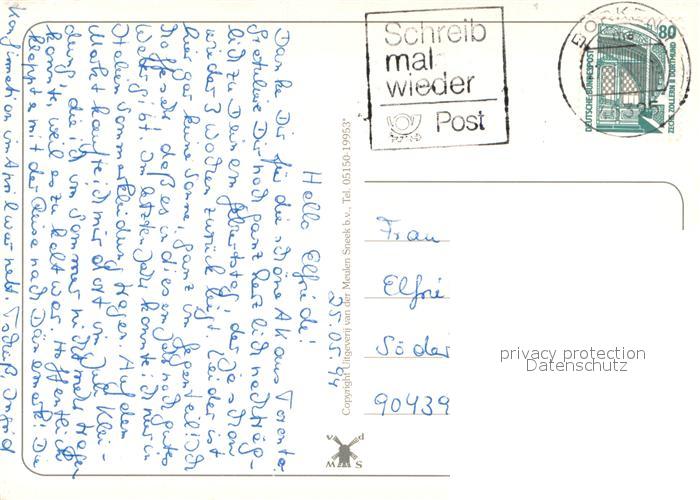 Hallo Elfriede!
25.05.94
Danke Dir für die schöne AK aus Toronto.
Gratuliere Dir noch ganz herzlich nachträg-
lich zu Deinem Geburtstag, der ja schon
wieder 3 Wochen zurück liegt. Leider ist
hier gar keine Sonne, ganz im Gegenteil! Ich
hoffe sehr, daß es in diesem Jahr noch gutes
Wetter gibt. Im letzten Jahr konnte ich nur in
Italien Sommerkleidung tragen. Auf dem
Markt kaufte ich mir dort im Juli Klei-
dung, die ich im Sommer nicht mehr tragen
konnte, weil es zu kalt war. Hoffentlich
klappte mit der Reise nach Dänemark! Die
Konfirmation im April war nett. Tschüß, Ingrid
Copyright Uitgeverij van der Meulen Sneek b.v., Tel. 05150-19953*
v d
W M S
Schreib
mal
wieder
Post
BORKEN
DEUTSCHE BUNDESPOST
80
ZECHE ZOLLERN II DORTMUND
Frau
Elfrie
Söder
90439
privacy protection
Datenschutz